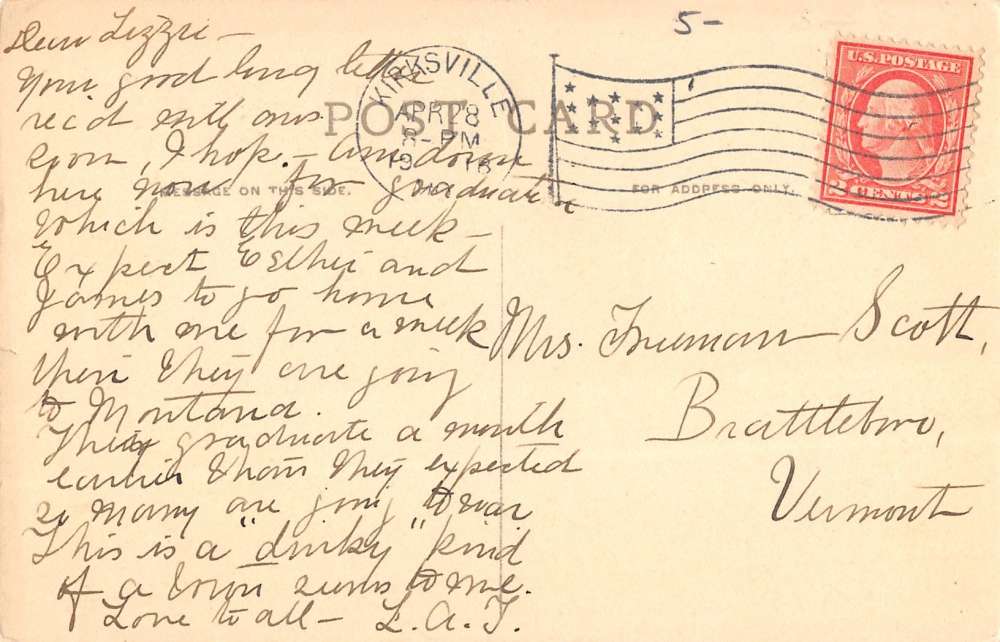 5-
Dear Lizzie -
Your good long letter
rec'd will ans.
soon I hope. - Am down
here now for graduation
which is this week -
Expect Esther and
James to go home
with me for a week
then they are going
to Montana.
They graduate a month
earlier than they expected
so many are going to war
This is a "dinky" kind
of a town seems to me.
Love to all - L.A.T.
POST CARD
MESSAGE ON THIS SIDE.
FOR ADDRESS ONLY.
KIRKSVILLE
APR 18
8 - PM
1918
MO.
U.S. POSTAGE
2 CENTS 2
Mrs. Freeman Scott,
Brattleboro,
Vermont